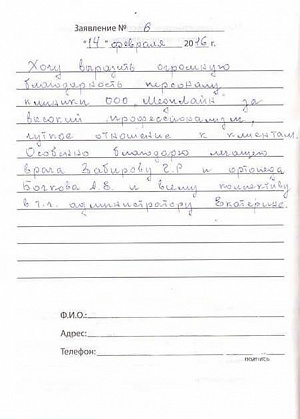 Заявление № 6
"14" февраля 2016 г.
Хочу выразить огромную
благодарность персоналу
клиники ООО за
высокий профессионализм,
чуткое отношение к клиентам.
Особенно благодарю
врача Забирову Г.Р и ортопеда
Бочкова А.В. и всему коллективу
в т.ч. администратору Екатерине.
Ф.И.О.:
Адрес:
Телефон:
подпись